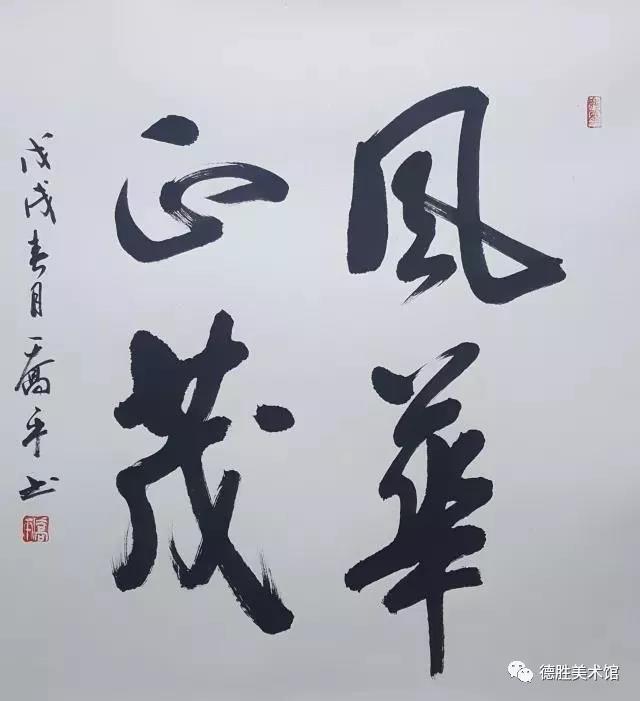 風華
正茂
戊戌春月喬平书
德胜美术馆